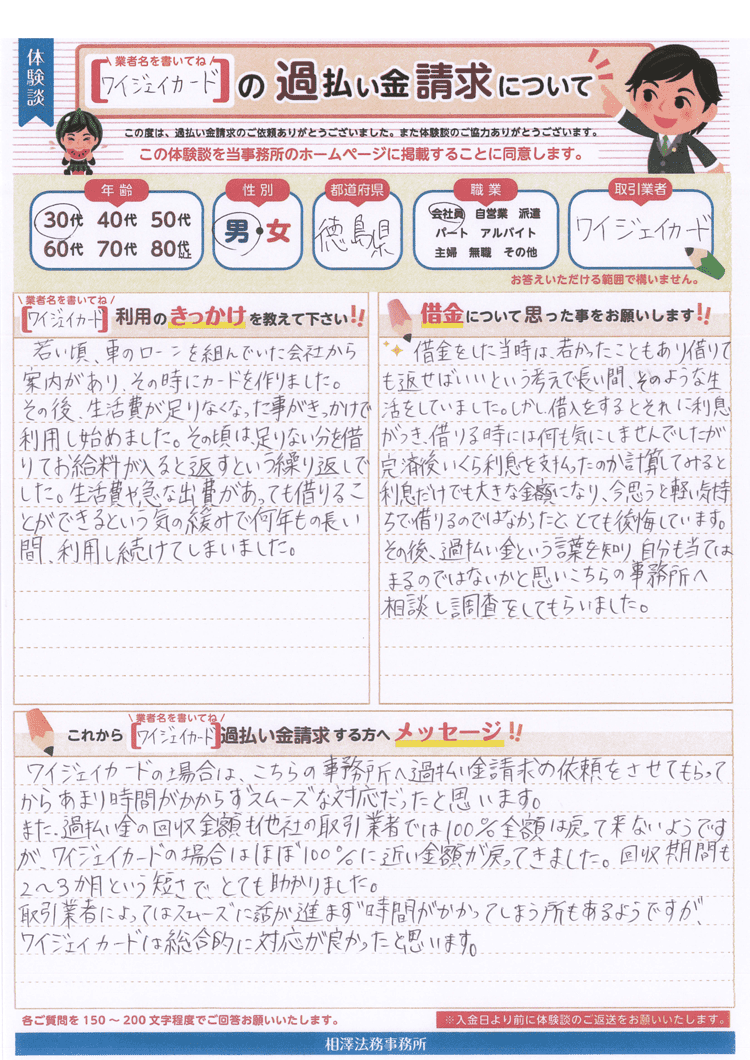 体験談
\ 業者名を書いてね /
[ワイジェイカード]の 過払い金請求について
この度は、過払い金請求のご依頼ありがとうございました。また体験談のご協力ありがとうございます。
この体験談を当事務所のホームページに掲載することに同意します。
年齢
30代 40代 50代
60代 70代 80代以上
性別
男・女
都道府県
徳島県
職業
会社員 自営業 派遣
パート アルバイト
主婦 無職 その他
取引業者
ワイジェイカード
お答えいただける範囲で構いません。
\ 業者名を書いてね /
[ワイジェイカード] 利用のきっかけを教えて下さい!!
若い頃、車のローンを組んでいた会社から
案内があり、その時にカードを作りました。
その後、生活費が足りなくなった事がきっかけで
利用し始めました。その頃は足りない分を借
りてお給料が入ると返すという繰り返しで
した。生活費や急な出費があっても借りるこ
とができるという気の緩みで何年もの長い
間、利用し続けてしまいました。
借金について思った事をお願いします!!
借金をした当時は、若かったこともあり借りて
も返せばいいという考えで長い間、そのような生
活をしていました。しかし借入をするとそれに利息
がつき、借りる時には何も気にしませんでしたが
完済後いくら利息を支払ったのか計算してみると
利息だけでも大きな金額になり、今思うと軽い気持
ちで借りるのではなかったと、とても後悔しています。
その後、過払い金という言葉を知り、自分も当ては
まるのではないかと思いこちらの事務所へ
相談し調査をしてもらいました。
\ 業者名を書いてね /
これから [ワイジェイカード] 過払い金請求する方へ メッセージ!!
ワイジェイカードの場合は、こちらの事務所へ過払い金請求の依頼をさせてもらって
からあまり時間がかからずスムーズな対応だったと思います。
また、過払い金の回収金額も他社の取引業者では100%全額は戻って来ないようです
が、ワイジェイカードの場合はほぼ100%に近い金額が戻ってきました。回収期間も
2〜3か月という短さでとても助かりました。
取引業者によってはスムーズに話が進まず時間がかかってしまう所もあるようですが、
ワイジェイカードは総合的に対応が良かったと思います。
各ご質問を150〜200文字程度でご回答お願いいたします。
※入金日より前に体験談のご返送をお願いいたします。
相澤法務事務所